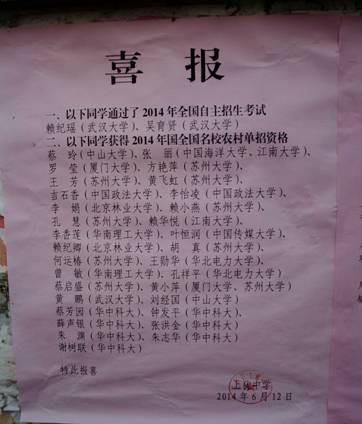 喜报
一、以下同学通过了2014年全国自主招生考试
赖纪瑶(武汉大学)、吴育贤(武汉大学)
二、以下同学获得2014年国全国名校农村单招资格
蔡 玲(中山大学)、张 丽(中国海洋大学、江南大学)
罗 莹(厦门大学)、方艳萍(苏州大学)
王 芳(苏州大学)、黄飞虹(苏州大学)
吉石香(中国政法大学)、李怡凌(中国政法大学)
李 娟(北京林业大学)、赖小燕(苏州大学)
孔 慧(苏州大学)、赖华悦(江南大学)
李香茂(华南理工大学)、叶恒润(中国传媒大学)
赖纪卿(北京林业大学)、胡 真(苏州大学)
何运椿(苏州大学)、王勋华(华北电力大学)
曾 敏(华南理工大学)、孔祥平(华北电力大学)
蔡启盛(苏州大学)、黄小萍(厦门大学、苏州大学)
黄 鹏(武汉大学)、刘经国(中山大学)
蔡芳园(华中科大)、钟发平(华中科大)
薛声银(华中科大)、张洪金(华中科大)
朱 澜(华中科大)、朱志华(华中科大)
谢树联(华中科大)
特此报喜
上犹中学
2014年6月12日